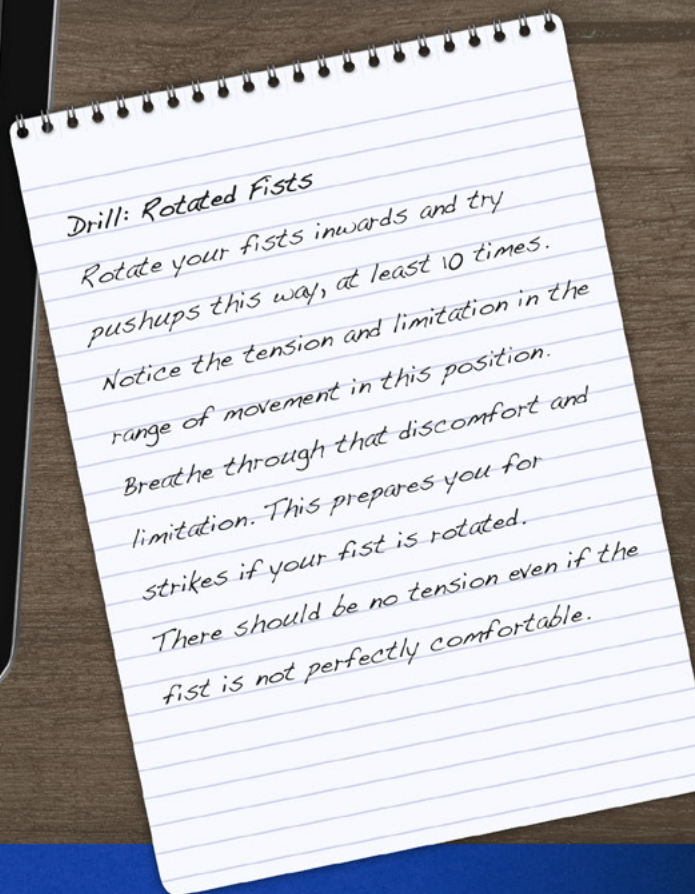 Drill: Rotated Fists
Rotate your fists inwards and try
pushups this way, at least 10 times.
Notice the tension and limitation in the
range of movement in this position.
Breathe through that discomfort and
limitation. This prepares you for
strikes if your fist is rotated.
There should be no tension even if the
fist is not perfectly comfortable.